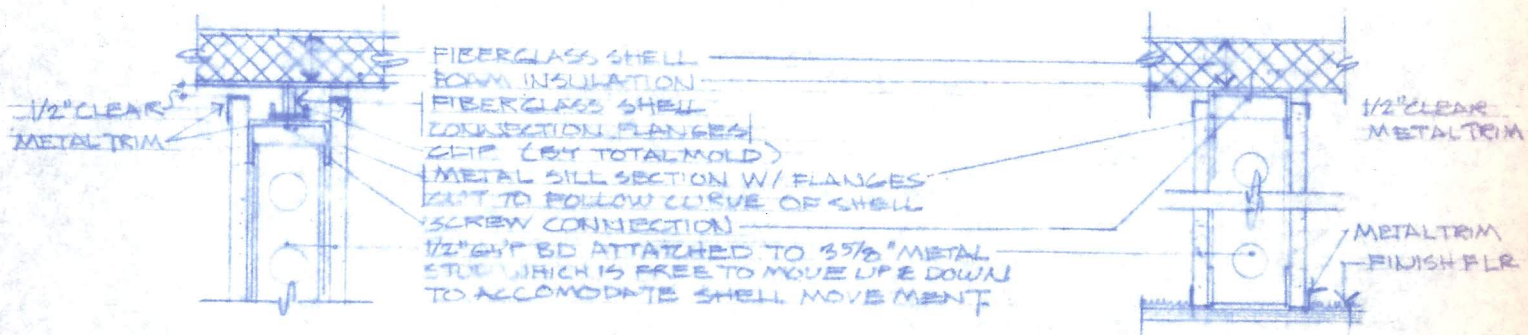 1/2" CLEAR
METAL TRIM
FIBERGLASS SHELL
FOAM INSULATION
FIBERGLASS SHELL
CONNECTION FLANGES
CLIP (BY TOTAL MOLD)
METAL SILL SECTION W/ FLANGES
CUT TO FOLLOW CURVE OF SHELL
SCREW CONNECTION
1/2" GYP BD ATTATCHED TO 3 5/8" METAL
STUD WHICH IS FREE TO MOVE UP & DOWN
TO ACCOMODATE SHELL MOVEMENT
1/2" CLEAR
METAL TRIM
METAL TRIM
FINISH FLR